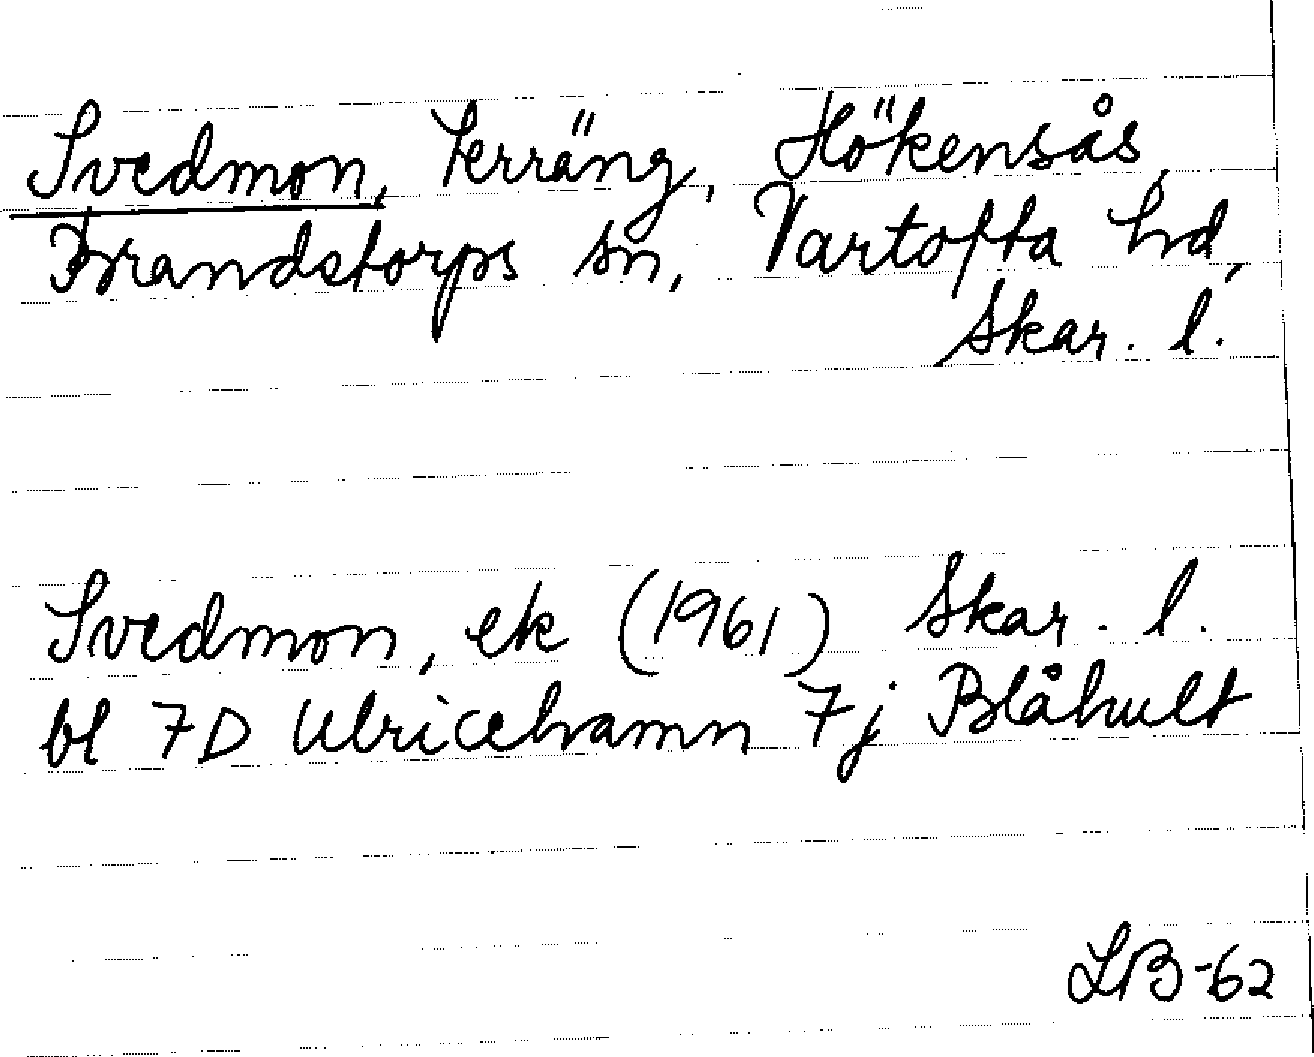 Svedmon, terräng, Hökensås,
Brandstorps sn, Vartofta hd,
Skar. l.
Svedmon, ek (1961) Skar. l.
bl 7D Ulricehamn 7j Blåhult
LB-62